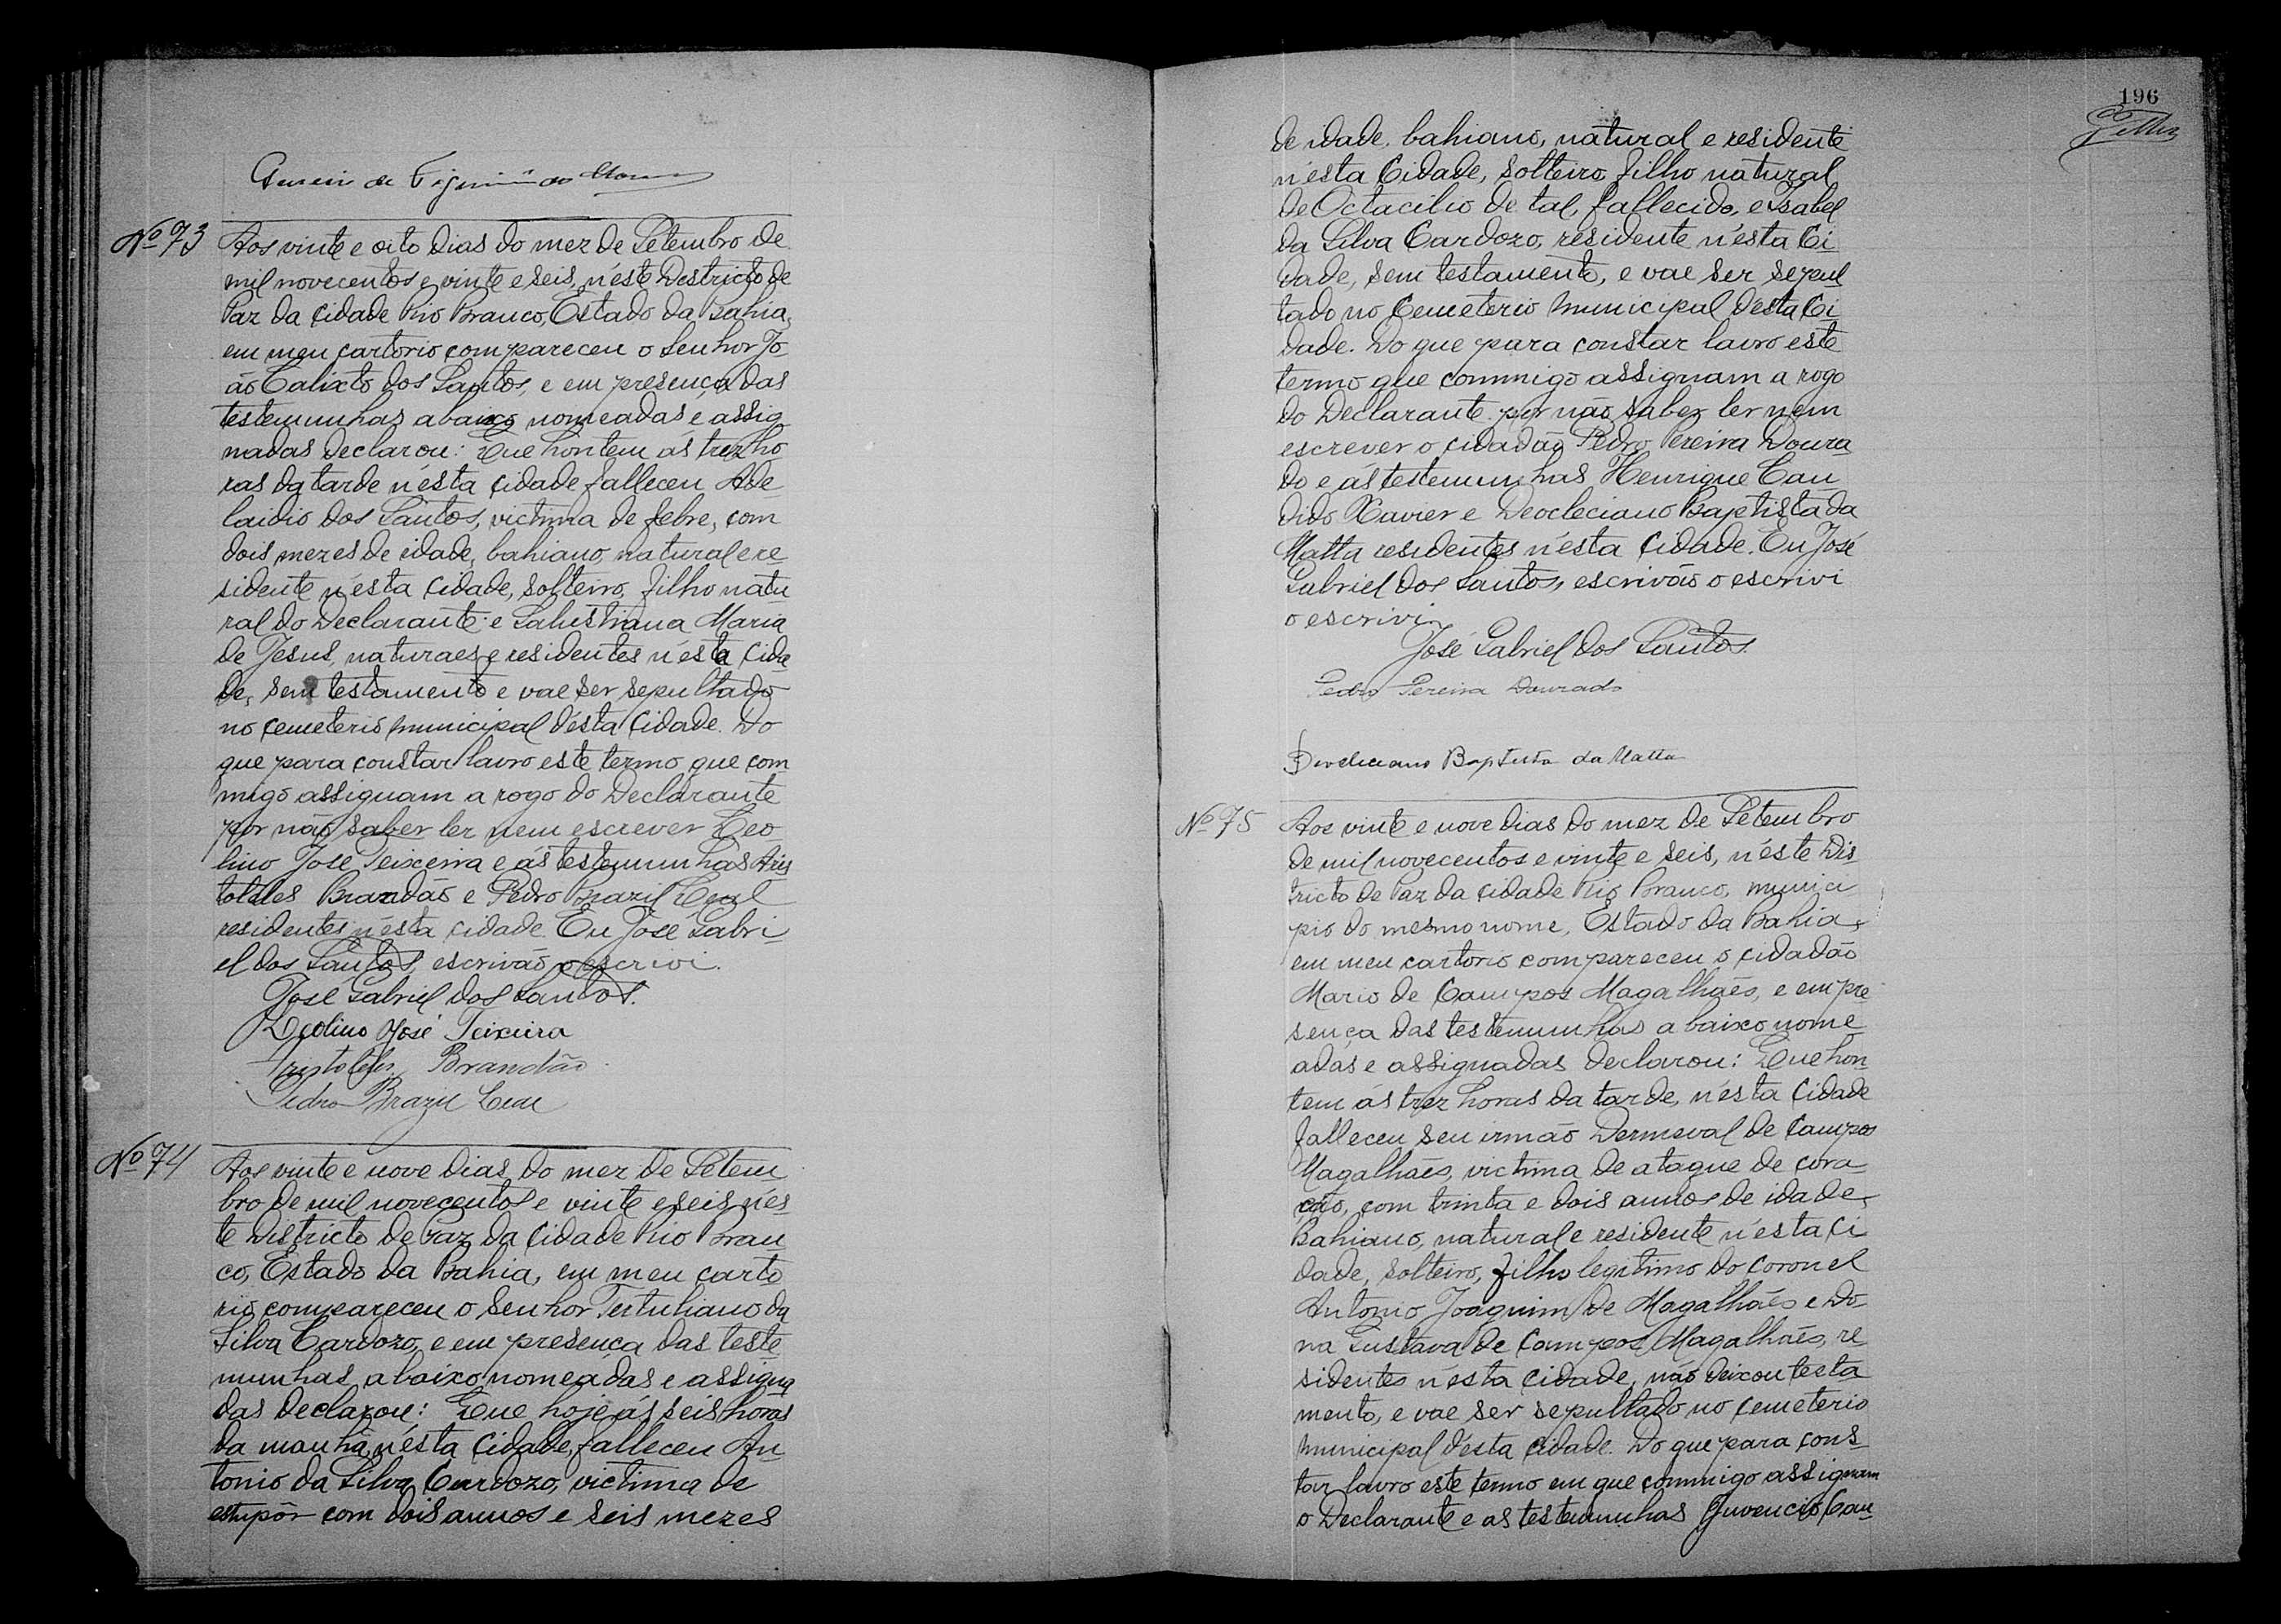 de Figueirêdo
Nº 73
Aos vinte e oito dias do mez de Setembro de
mil novecentos e vinte e seis, n'éste Destricto de
Paz da Cidade Rio Branco, Estado da Bahia,
em meu cartorio compareceu o Senhor Jo
ão Calixto dos Santos, e em presença das
testemunhas abaixo nomeadas e assig
nadas declarou: Que hontem ás trez ho
ras da tarde n'ésta cidade falleceu Ade
laidio dos Santos, victima de febre, com
dois mezes de idade, bahiano, natural e re
sidente n'ésta Cidade, solteiro, filho natu
ral do Declarante e Salustiana Maria
de Jesus, naturaes e residentes n'ésta Cida
de, sem testamento e vae ser sepultado
no cemeterio municipal d'ésta Cidade. Do
que para constar lavro este termo que com
migo assignam a rogo do Declarante
por não saber ler nem escrever Leo
lino José Teixeira e ás testemunhas Aris
toteles Brandão e Pedro Brazil Leal
residentes n'ésta cidade. Eu José Gabri
el dos Santos, escrivão o escrivi.
José Gabriel dos Santos.
Leolino José Teixeira
Aristoteles Brandão
Pedro Brazil Leal
Nº 74
Aos vinte e nove dias do mez de Setem
bro de mil novecentos e vinte e seis n'és
te Districto de Paz da Cidade Rio Bran
co, Estado da Bahia, em meu carto
rio compareceu o Senhor Tertuliano da
Silva Cardozo, e em presença das teste
munhas abaixo nomeádas e assigna
das declarou: Que hoje ás seis horas
da manhã, n'ésta Cidade, falleceu An
tonio da Silva Cardozo, victima de
estupôr com dois annos e seis mezes
196
de idade, bahiano, natural e residente
n'ésta Cidade, solteiro, filho natural
de Octacilio de tal, fallecido, e Isabel
da Silva Cardozo, residente n'ésta Ci
dade, sem testamento, e vae ser sepul
tado no Cemeterio Municipal d'ésta Ci
dade. Do que para constar lavro este
termo que commigo assignam a rogo
do Declarante por não saber ler nem
escrever o cidadão Pedro Pereira Doura
do e ás testemunhas Henrique Can
dido Xavier e Deocleciano Baptista da
Matta residentes n'ésta Cidade. Eu José
Gabriel dos Santos, escrivão o escrivi
o escrivi.
José Gabriel dos Santos.
Pedro Pereira Dourado
Deocleciano Baptista da Matta
Nº 75
Aos vinte e nove dias do mez de Setembro
de mil novecentos e vinte e seis, n'éste Dis
tricto de Paz da Cidade Rio Branco, munici
pio do mesmo nome, Estado da Bahia,
em meu cartorio compareceu o cidadão
Mario de Campos Magalhães, e em pre
sença das testemunhas abaixo nome
adas e assignadas declarou: Que hon
tem ás trez horas da tarde, n'ésta Cidade
falleceu seu irmão Dermeval de Campos
Magalhães, victima de ataque de cora
ção, com trinta e dois annos de idade,
Bahiano, natural e residente n'ésta Ci
dade, solteiro, filho legitimo do Coronel
Antonio Joaquim de Magalhães e Do
na Gustava de Campos Magalhães, re
sidentes n'ésta Cidade, não deixou testa
mento, e vae ser sepultado no cemeterio
municipal d'ésta Cidade. Do que para cons
tar lavro este termo em que commigo assignam
o Declarante e as testemunhas Juvencio Can